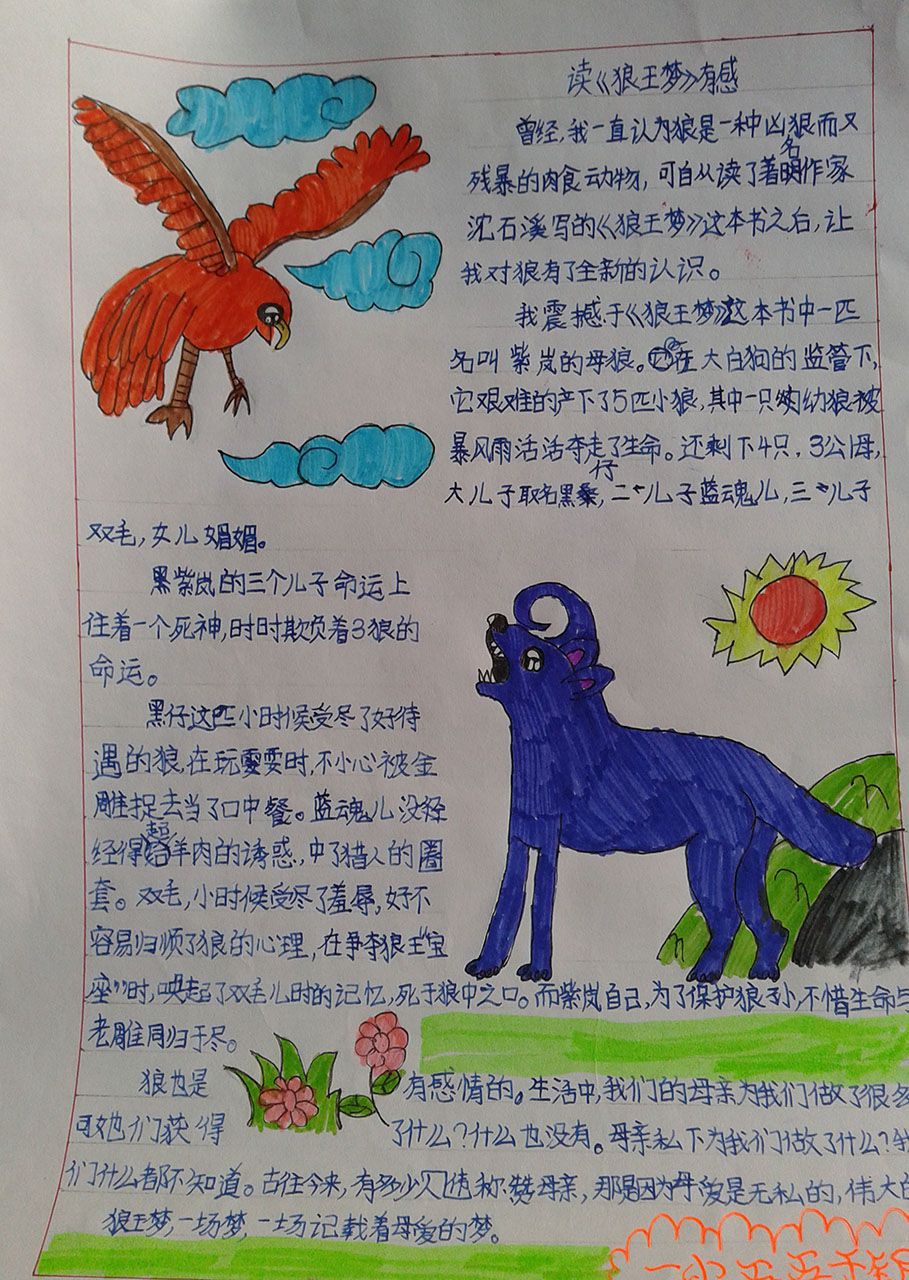 读《狼王梦》有感
曾经,我一直认为狼是一种凶狠而又
残暴的肉食动物,可自从读了著名作家
沈石溪写的《狼王梦》这本书之后,让
我对狼有了全新的认识。
我震撼于《狼王梦》这本书中一匹
名叫紫岚的母狼。在大白狗的监管下,
它艰难的产下了5匹小狼,其中一只幼狼被
暴风雨活活夺走了生命。还剩下4只,3公1母,
大儿子取名黑仔,二儿子蓝魂儿,三儿子
双毛,女儿媚媚。
黑紫岚的三个儿子命运上
住着一个死神,时时欺负着3狼的
命运。
黑仔这匹小时候受尽了好待
遇的狼,在玩耍时,不小心被金
雕捉去当了口中餐。蓝魂儿没经
经得起羊肉的诱惑,中了猎人的圈
套。双毛,小时候受尽了羞辱,好不
容易归顺了狼的心理,在争夺狼王“宝
座”时,唤起了双毛儿时的记忆,死于狼中之口。而紫岚自己,为了保护狼孙,不惜生命与
老雕同归于尽。
狼也是有感情的。生活中,我们的母亲为我们做了很多
可她们获得了什么?什么也没有。母亲私下为我们做了什么?我
们什么都不知道。古往今来,有多少人传称赞母亲,那是因为母爱是无私的,伟大的
狼王梦,一场梦,一场记载着母爱的梦。